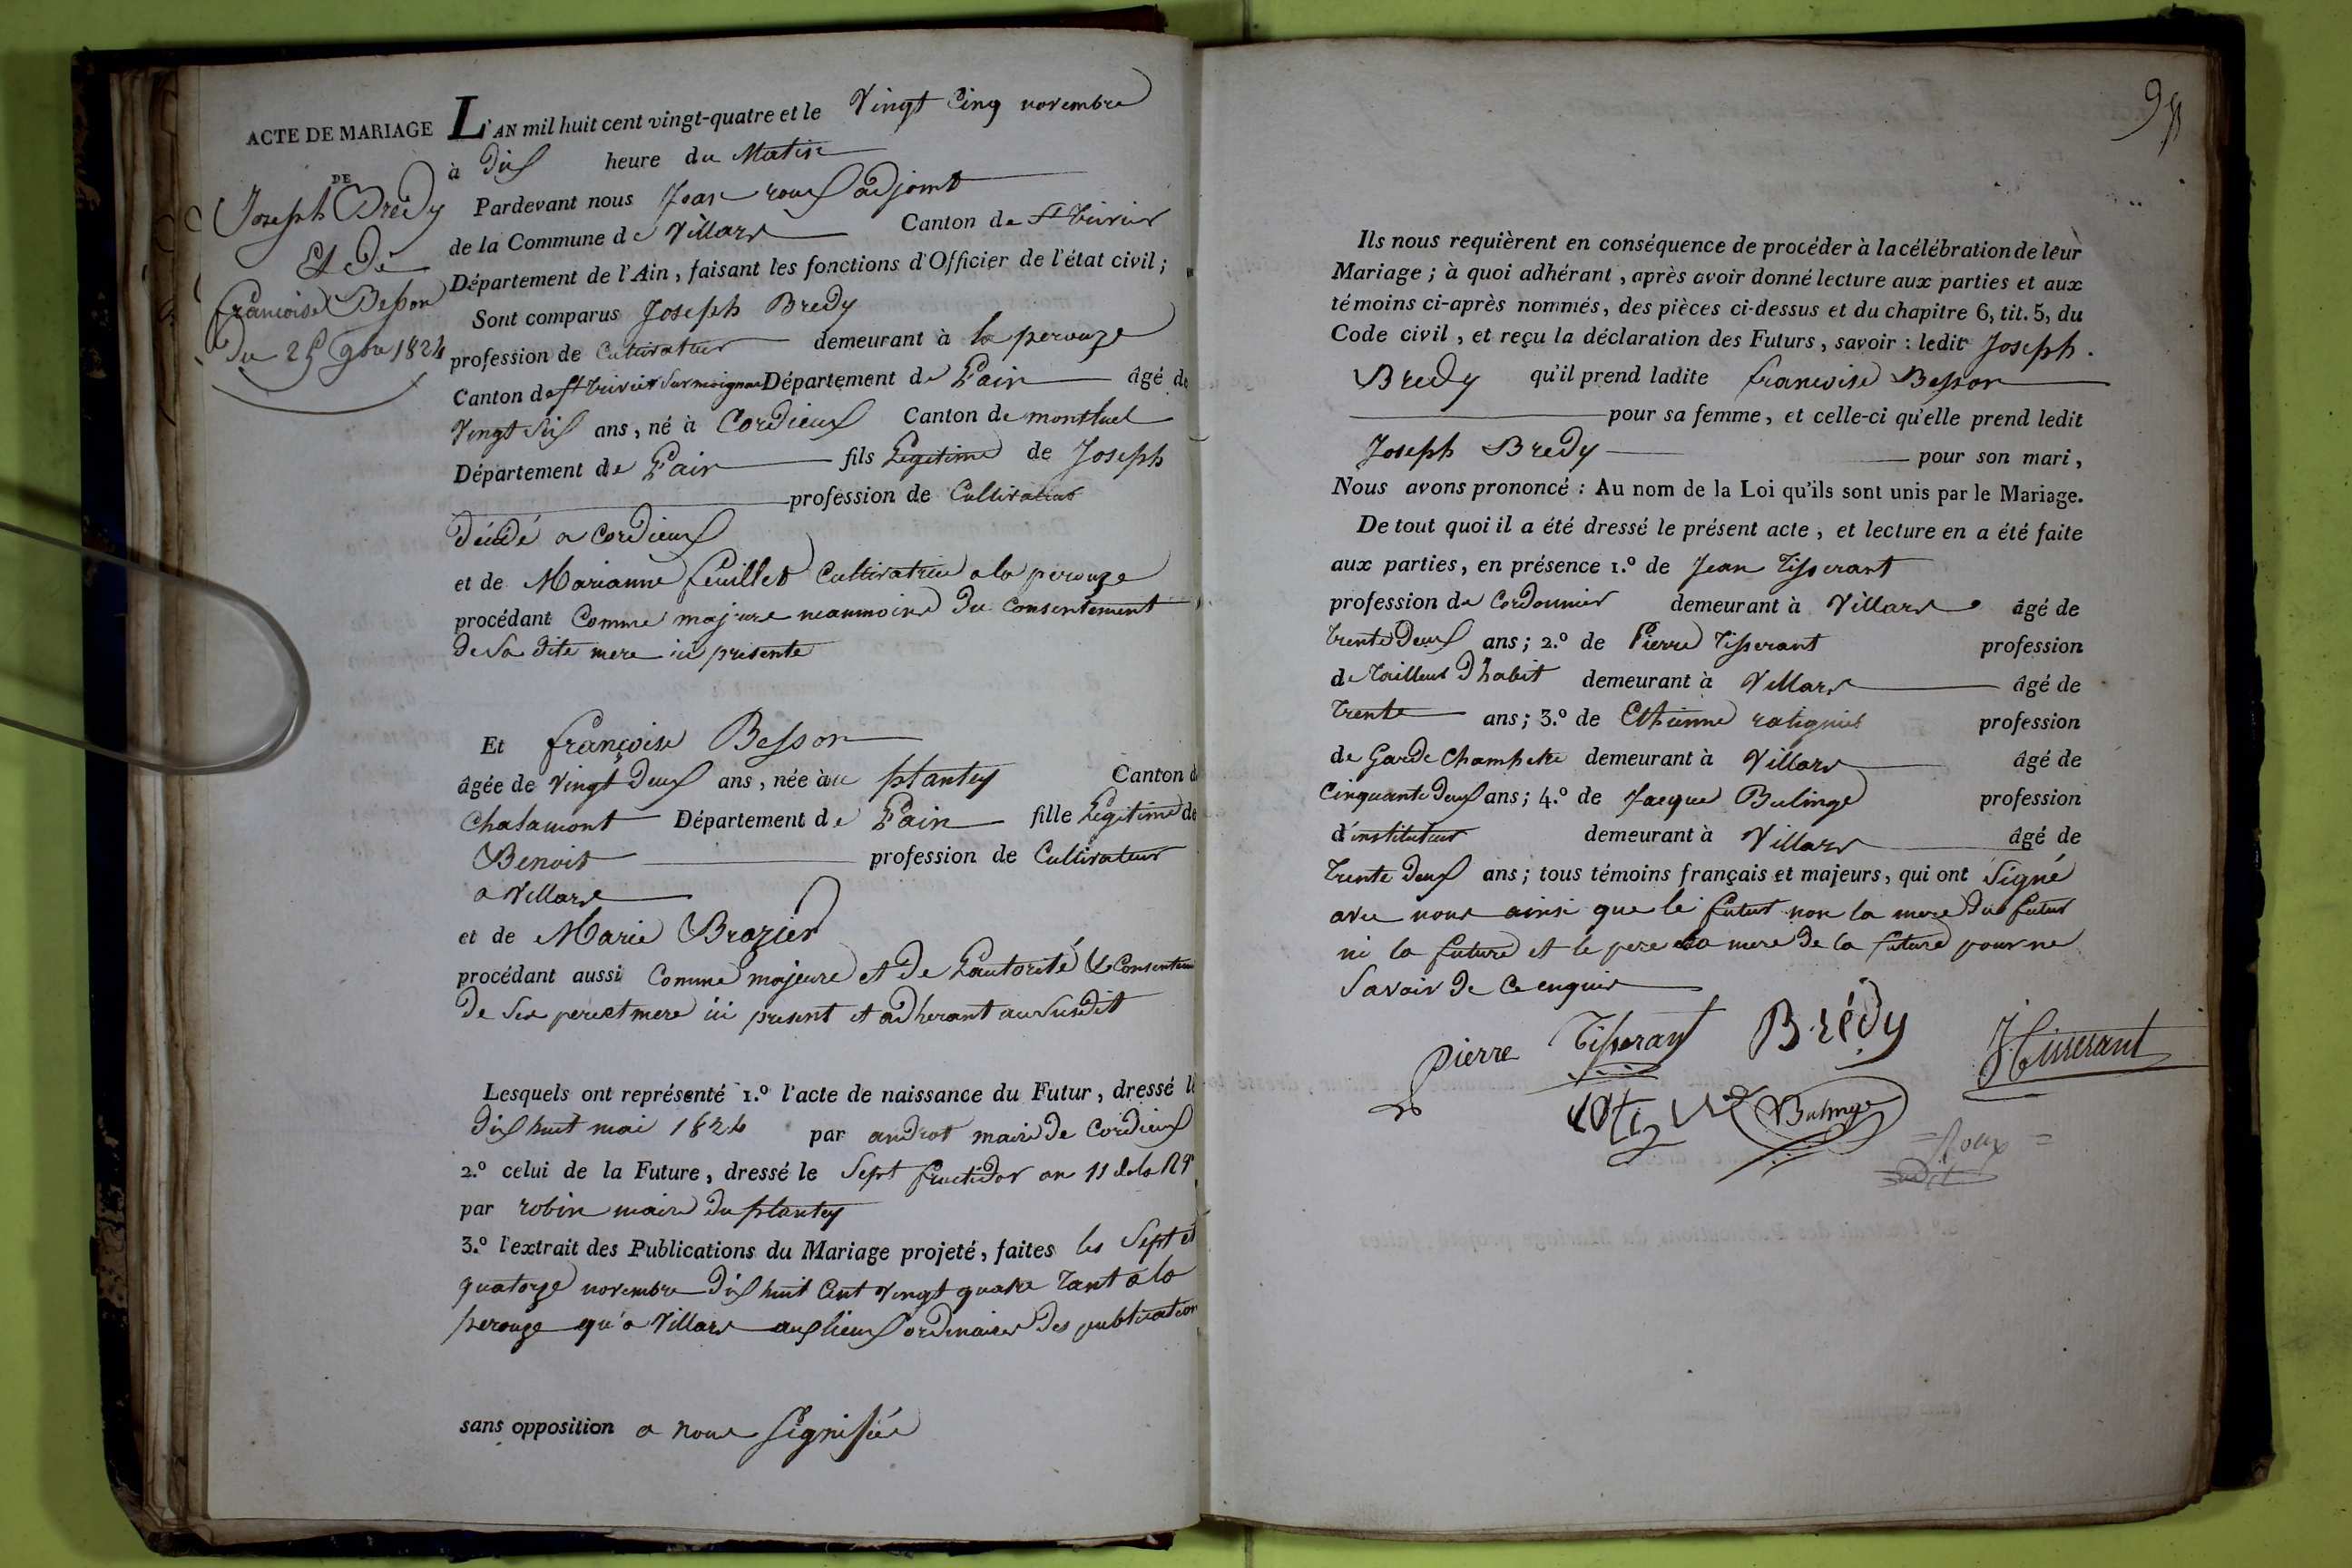 ACTE DE MARIAGE
DE
Joseph Bredy
Et De
francoise Besson
Du 25 9bre 1824
L'AN mil huit cent vingt-quatre et le Vingt Cinq novembre
à dix heure du Matin
Pardevant nous Jean roux adjoint
de la Commune de Villars Canton de St Trivier
Département de l'Ain, faisant les fonctions d'Officier de l'état civil;
Sont comparus Joseph Bredy
profession de Cultivateur demeurant à la perouze
Canton de St trivier Sur moignan Département de Lain âgé de
Vingt Six ans, né à Cordieux Canton de montluel
Département de Lain fils Legitime de Joseph
profession de Cultivateur
décédé a Cordieux
et de Marianne feuillet Cultivatrice a la perouze
procédant Comme majeure neanmoins du Consentement
de Sa dite mere ici presente
Et françoise Besson
âgée de Vingt deux ans, née à au plantey Canton de
Chalamont Département de Lain fille Legitime de
Benoit profession de Cultivateur
a Villars
et de Marie Brazier
procédant aussi Comme majeure et de Lautorité & Consentem
de Ses pere et mere ici present et adherant au Susdit
Lesquels ont représenté 1.º l'acte de naissance du Futur, dressé le
dix huit mai 1824 par androt maire de Cordieux
2.º celui de la Future, dressé le Sept fructidor an 11 de la
par robin maire du plantey
3.º l'extrait des Publications du Mariage projeté, faites les Sept et
quatorze novembre dix huit Cent vingt quatre tant a la
perouze qu'a Villars aux lieux ordinaires des publication
sans opposition a nous Signifiée
Ils nous requièrent en conséquence de procéder à la célébration de leur
Mariage; à quoi adhérant, après avoir donné lecture aux parties et aux
témoins ci-après nommés, des pièces ci-dessus et du chapitre 6, tit. 5, du
Code civil, et reçu la déclaration des Futurs, savoir: ledit Joseph
Bredy qu'il prend ladite francoise Besson
pour sa femme, et celle-ci qu'elle prend ledit
Joseph Bredy pour son mari,
Nous avons prononcé: Au nom de la Loi qu'ils sont unis par le Mariage.
De tout quoi il a été dressé le présent acte, et lecture en a été faite
aux parties, en présence 1.º de Jean Tisserant
profession de Cordonnier demeurant à Villars âgé de
trente deux ans; 2.º de Pierre Tisserant profession
de Tailleur d'habit demeurant à Villars âgé de
trente ans; 3.º de Ethienne ratignier profession
de Garde Champetre demeurant à Villars âgé de
Cinquante deux ans; 4.º de Jacque Bulinge profession
d'instituteur demeurant à Villars âgé de
trente deux ans; tous témoins français et majeurs, qui ont Signé
avec nous ainsi que le futur non la mere du futur
ni la future et le pere la mere de la future pour ne
Savoir de ce enquis
Pierre Tisserant Brédy J Tisserant
Bulinge
Roux
adjt